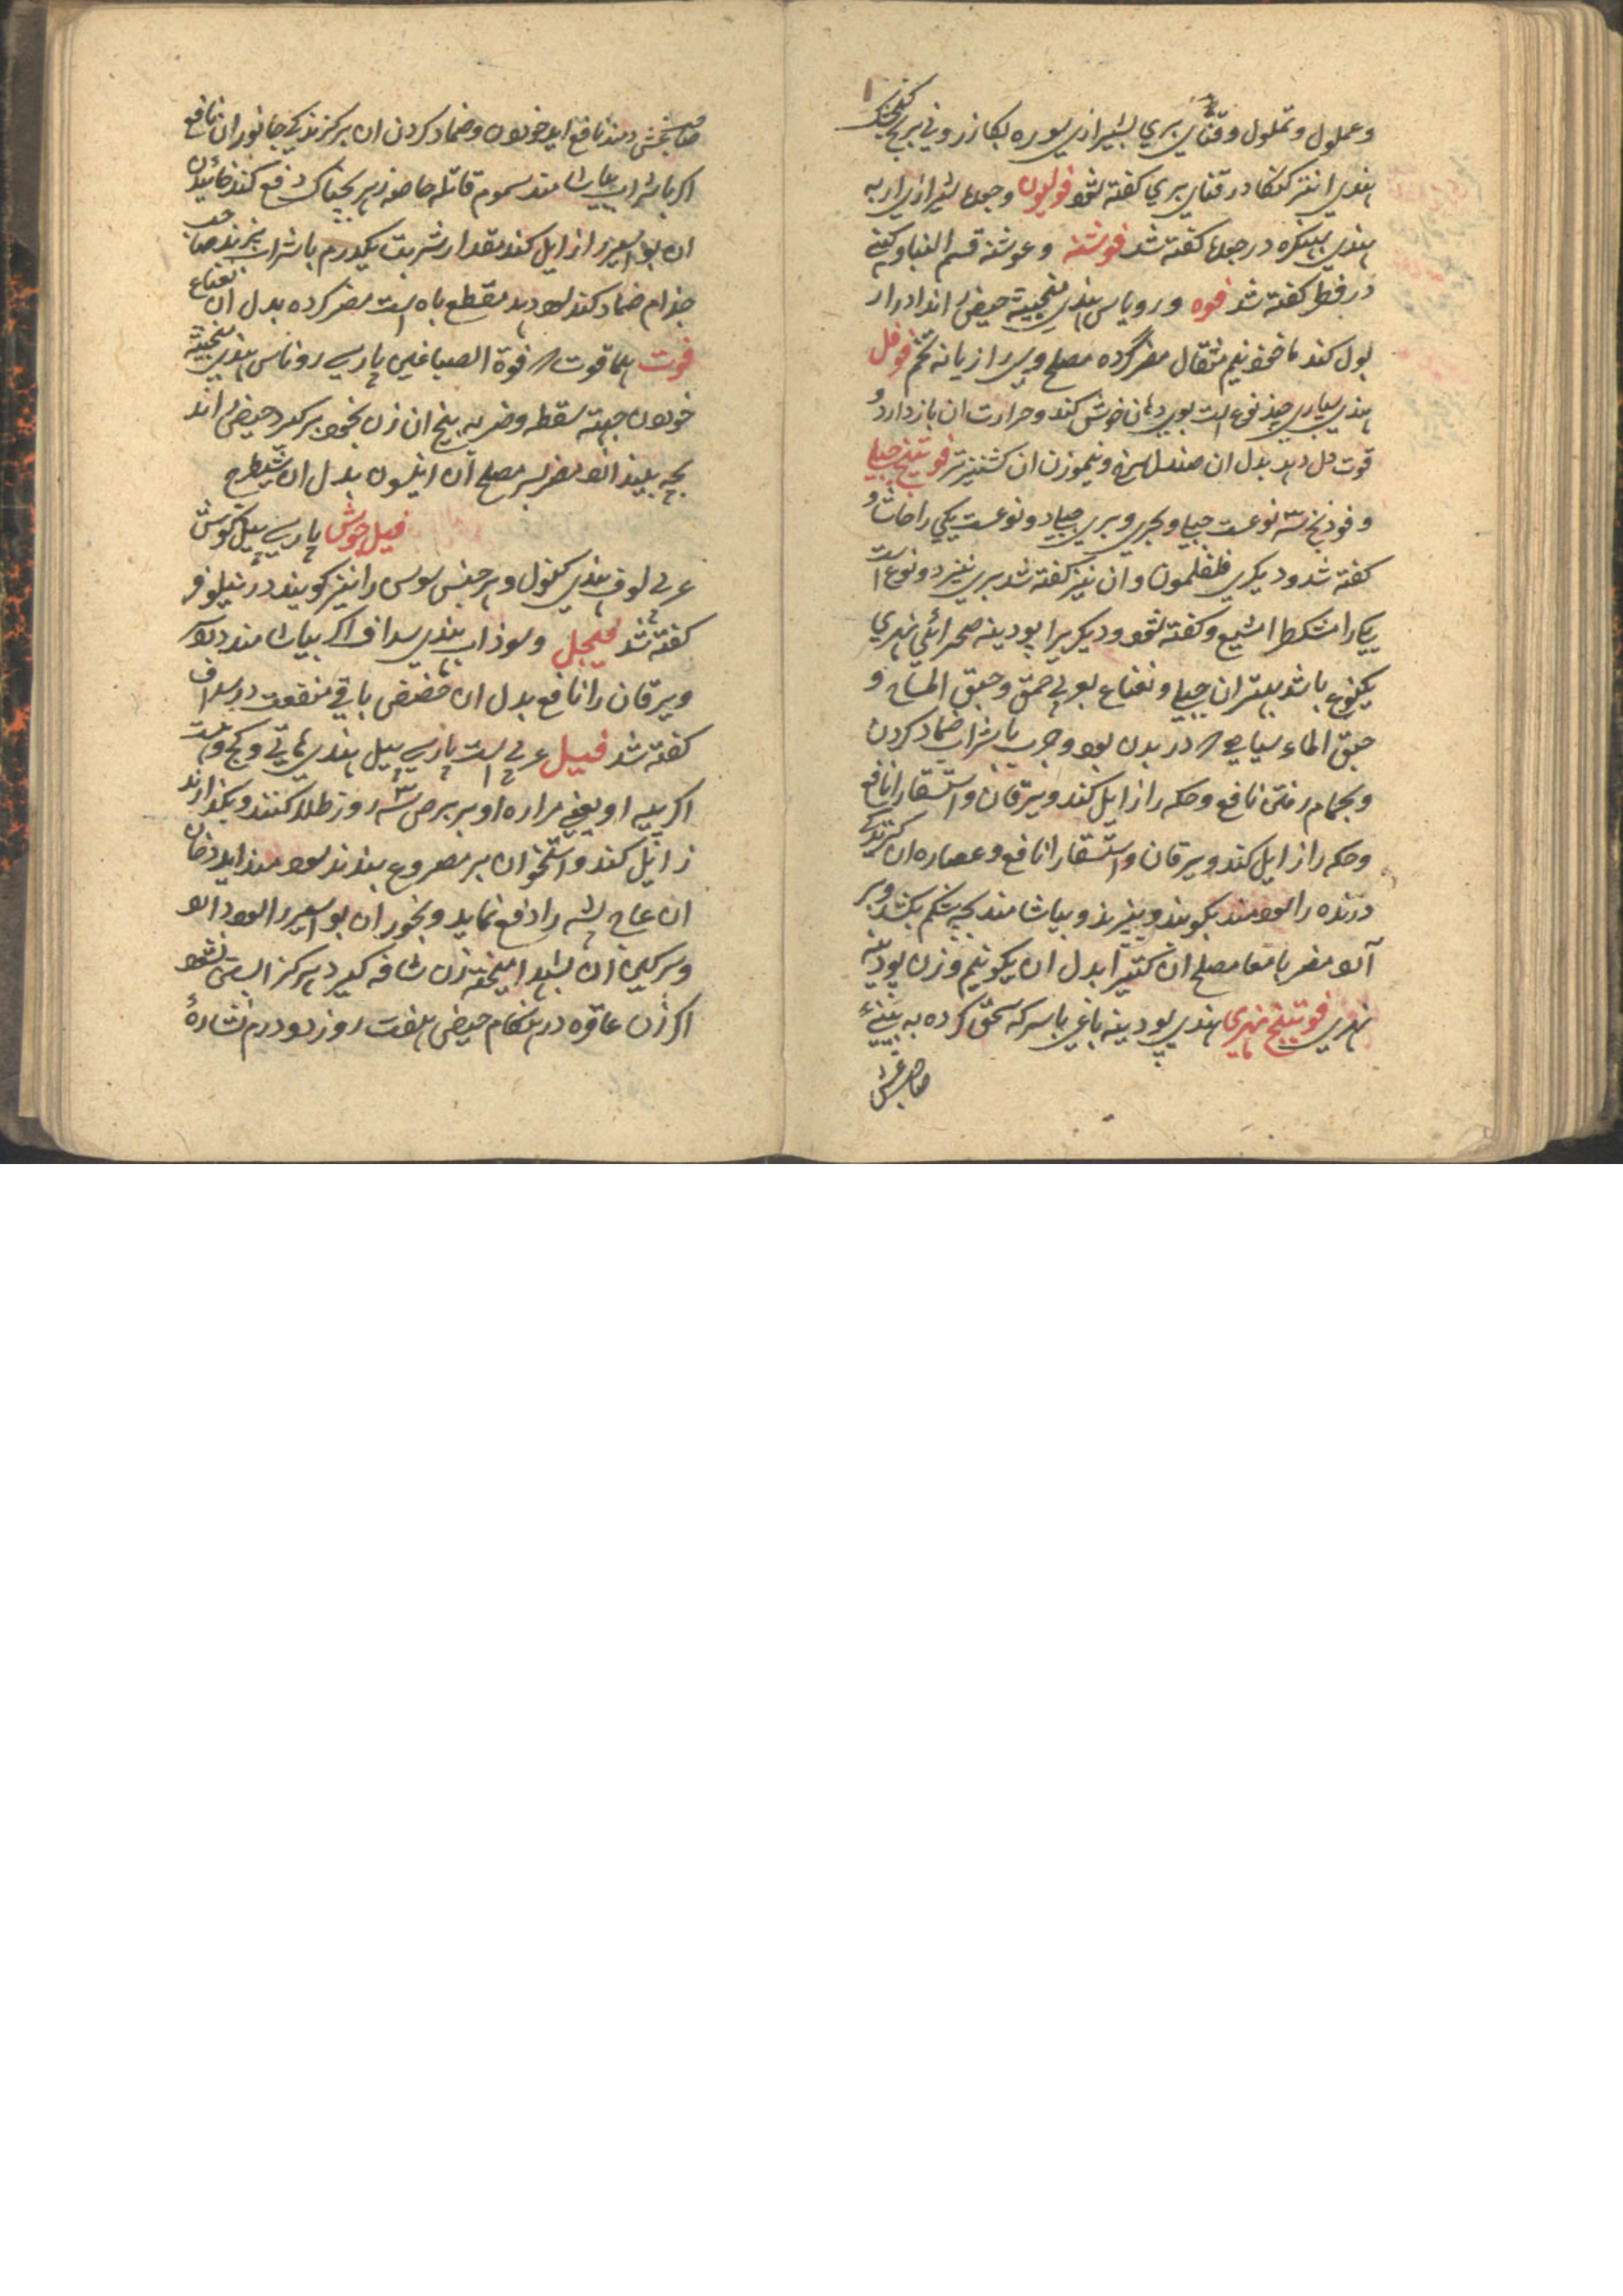 وعملول و تملول و قثای بری بشیرازی بوره بکازرونی برنج
هندی انتر گنگا در قثای بری گفته شود فولیون و جعده بشیرازی اربه
هندی بینکره در جعده گفته شد فوشنه و غوشنه قسم الفبا و کبنی
در فطر گفته شد فوه و رویاس هندی منجیته حیض اند ادرار
بول کند ماخوذ نیم مثقال مضر گرده مصلح وی رازیانه تخم فوفل
هندی سپاری چند نوع است بوی دهان خوش کند و حرارت ان باز دارد و
قوت دل دهد بدل ان صندل سرخ و نیموزن ان کشنیز تر فوتنج جبلی
و فودنج سه نوعست جبلی و بحری و بری جبلی دو نوعست یکی را حاشا و
گفته شد و دیگری فلفلمون و ان نیز گفته شد بری نیز دو نوع است
یکی را مشکطرامشیع و گفته شود و دیگری را پودینه صحرائی نهری
یکنوع باشد بهتر ان جبلی و نعناع بعربی حمق و حبق التمساح و
حبق الماء سیاهی که در بدن بود و جرب با شراب ضماد کردن
و بحمام رفتن نافع و حکه را زایل کند و یرقان و استسقا را نافع
و حکه را زایل کند و یرقان و استسقا را نافع و عصاره ان گزندگی
درنده را سود مند بکوبند و بپزند و بیاشامند بچه شکم بکشد و بر
آلو مضر بامعا مصلح ان کتیرا بدل ان یکونیم وزن پودینه
نهری فوتنج نهری هندی پودینه باغی با سرکه سحق کرده به بینی
صاحب غش
صاحب غش دهند نافع اید خوردن و ضماد کردن ان بر گزندگی جانوران نافع
اگر با شراب بیاشامند سموم قاتله خاصه زهر بچناک دفع کند خائیدن
ان بواسیر زایل کند مقدار شربت یکدرم با شراب بپزند صاحب
جذام ضماد کند سود دهد مقطع باه است مضر گرده بدل ان نعناع
فوت هما قوت فوة الصباغین پارسی روناس هندی منجیته
خوردن جهته سقطه و ضربه بیخ ان زن بخود برگیرد حیض اند
بچه بیندازد مضر بسر مصلح ان انیسون بدل ان شیطرج
فیل جوش پارسی پیل گوش
عربی لوف هندی کنول و هر جنس سوسن را نیز گویند در نیلوفر
گفته شد فیجل و سوذاب هندی سداف اگر بیاشامند دیو
و یرقان را نافع بدل ان حضض باقی منفعت در سداف
گفته شد فیل عربی است پارسی پیل هندی هاتی و کج و
اگر پیه او یعنی مراره او بر برص سه روز طلا کنند و بگذارند
زائل کند و استخوان بر مصروع بندند سود مند اید دخان
ان عاج پشه را دفع نماید و بخور ان بواسیر را سود دارد
و سرگین ان بشهد امیخته زن شافه گیرد هرگز ابستن نشود
اگر زن عاقره در هنگام حیض هفت روز دو درم نشاره